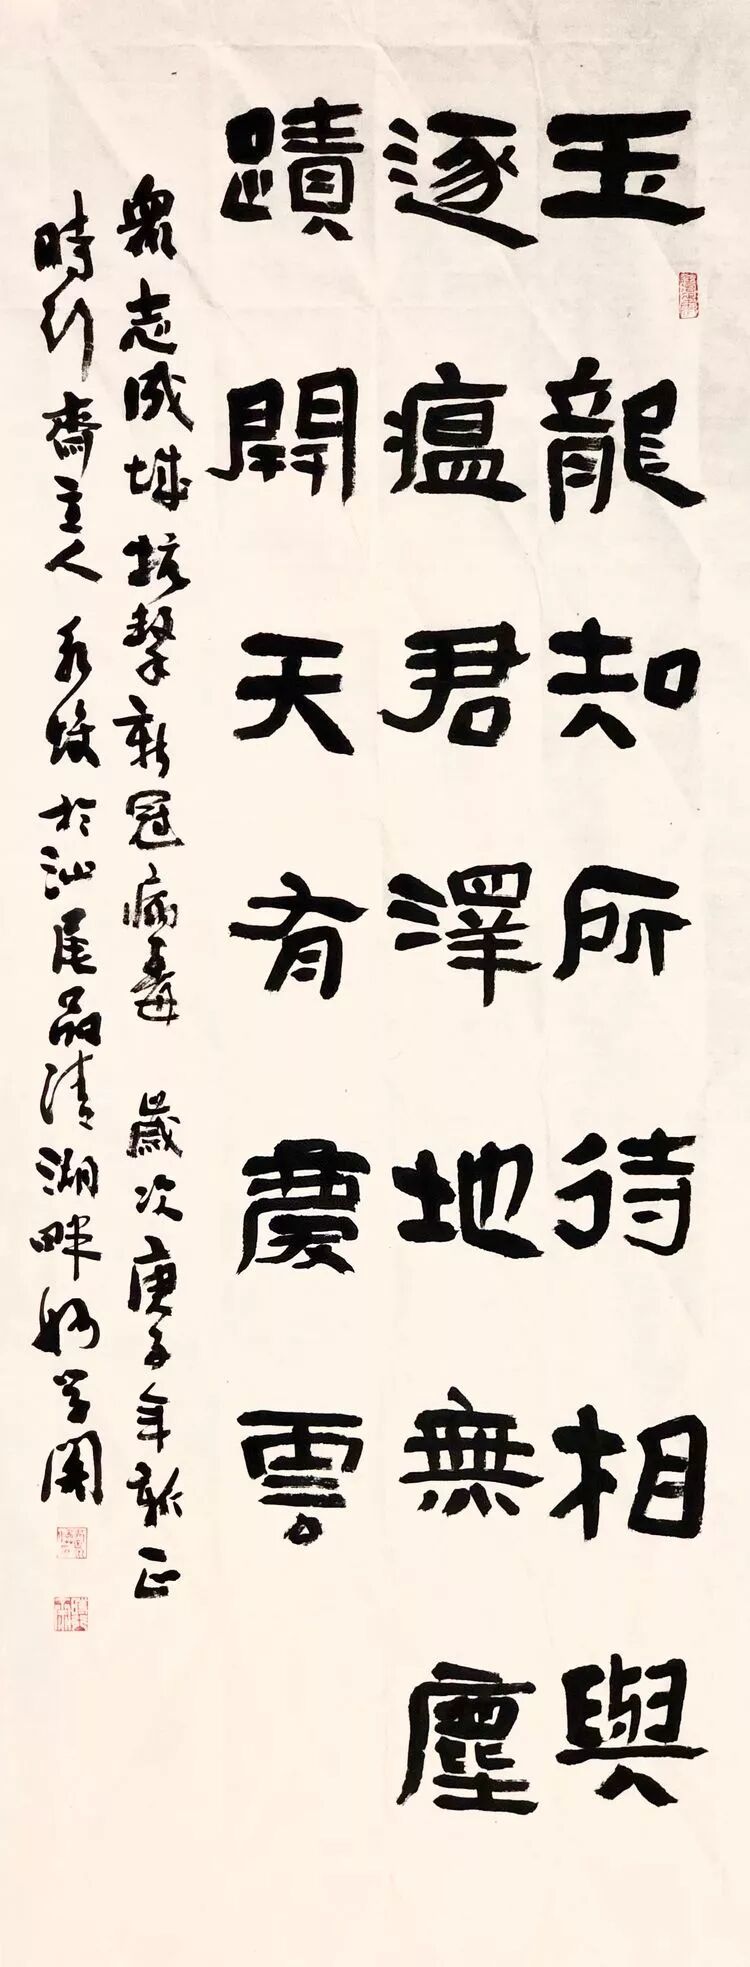 玉龍知所待相與
逐瘟君澤地無塵
蹟開天有慶雲
眾志成城抗擊新冠病毒 歲次庚子年新正
時行齋主人永煥於汕尾品清湖畔